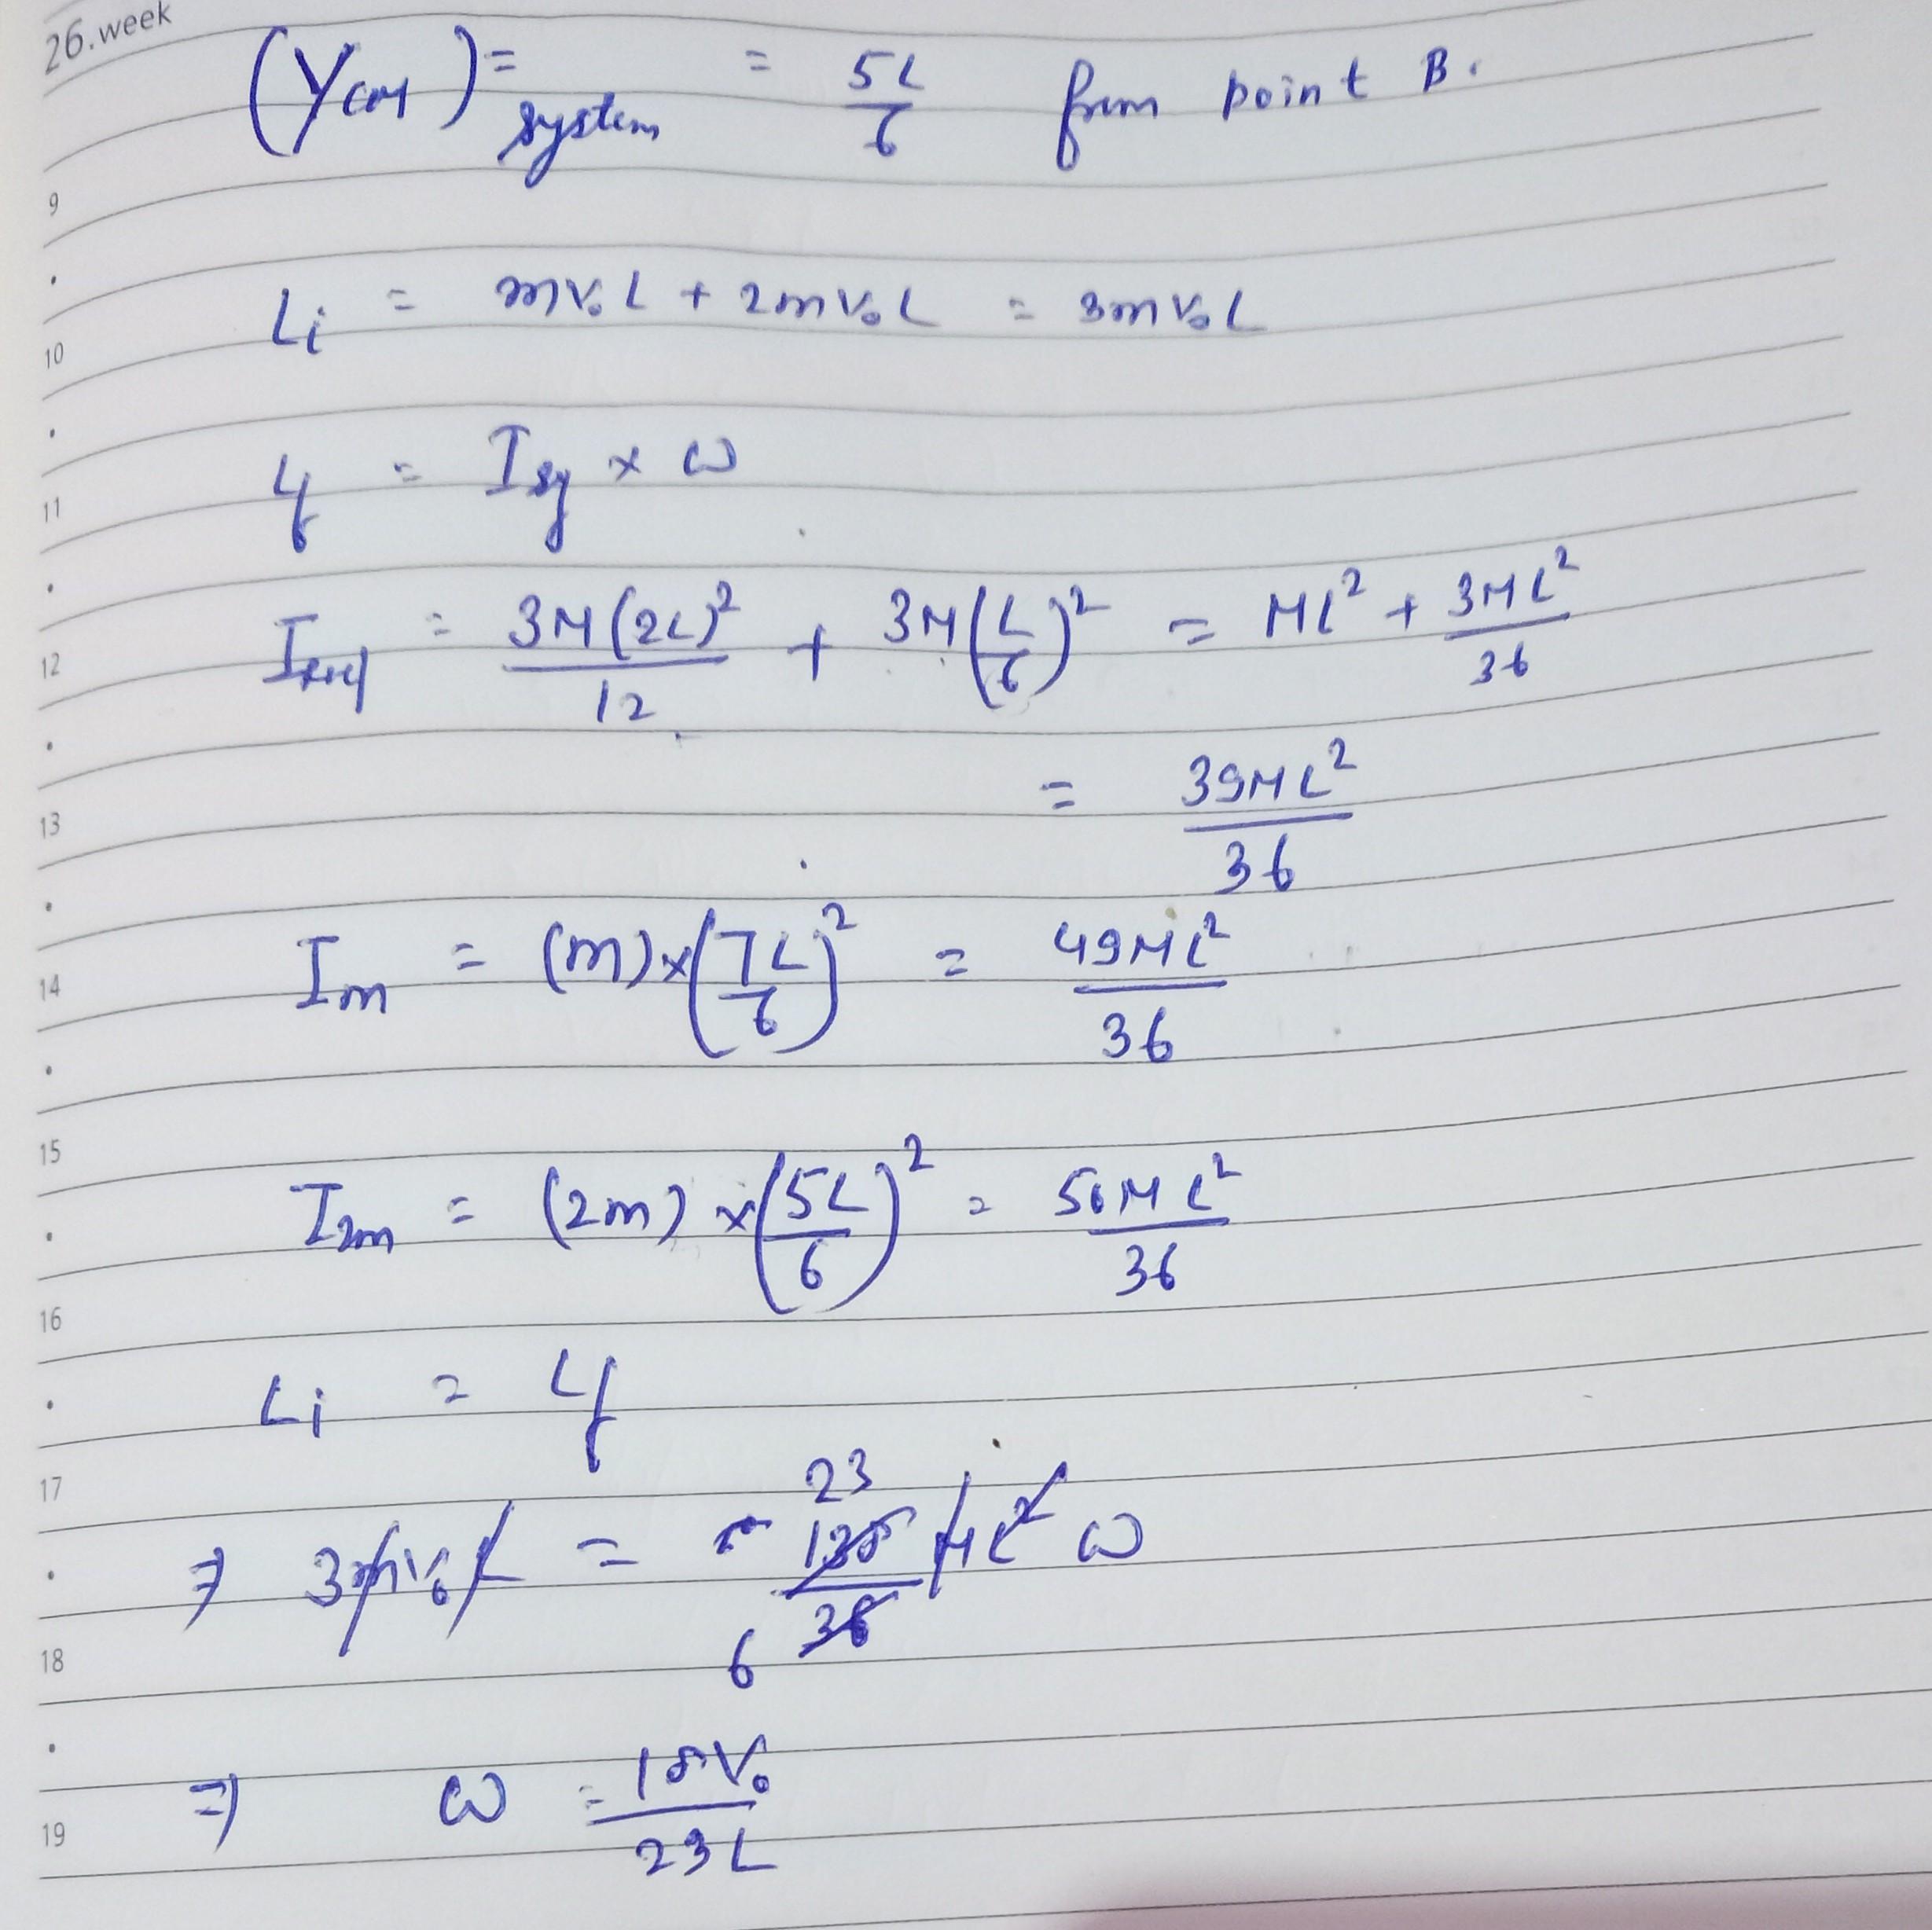 26.week
(Ycm)= system = 5L/6 from point B.
9
Li = mv₀L + 2mv₀L = 3mv₀L
10
Lf = Isy × ω
11
Irod = 3M(2L)²/12 + 3M(L/6)² = ML² + 3ML²/36
12
= 39ML²/36
13
Im = (m)×(7L/6)² = 49ML²/36
14
15
I2m = (2m)×(5L/6)² = 50ML²/36
16
Li = Lf
17
23
⇒ 3mv₀L = 138/36 ML² ω
18
6
⇒ ω = 18V₀/23L
19